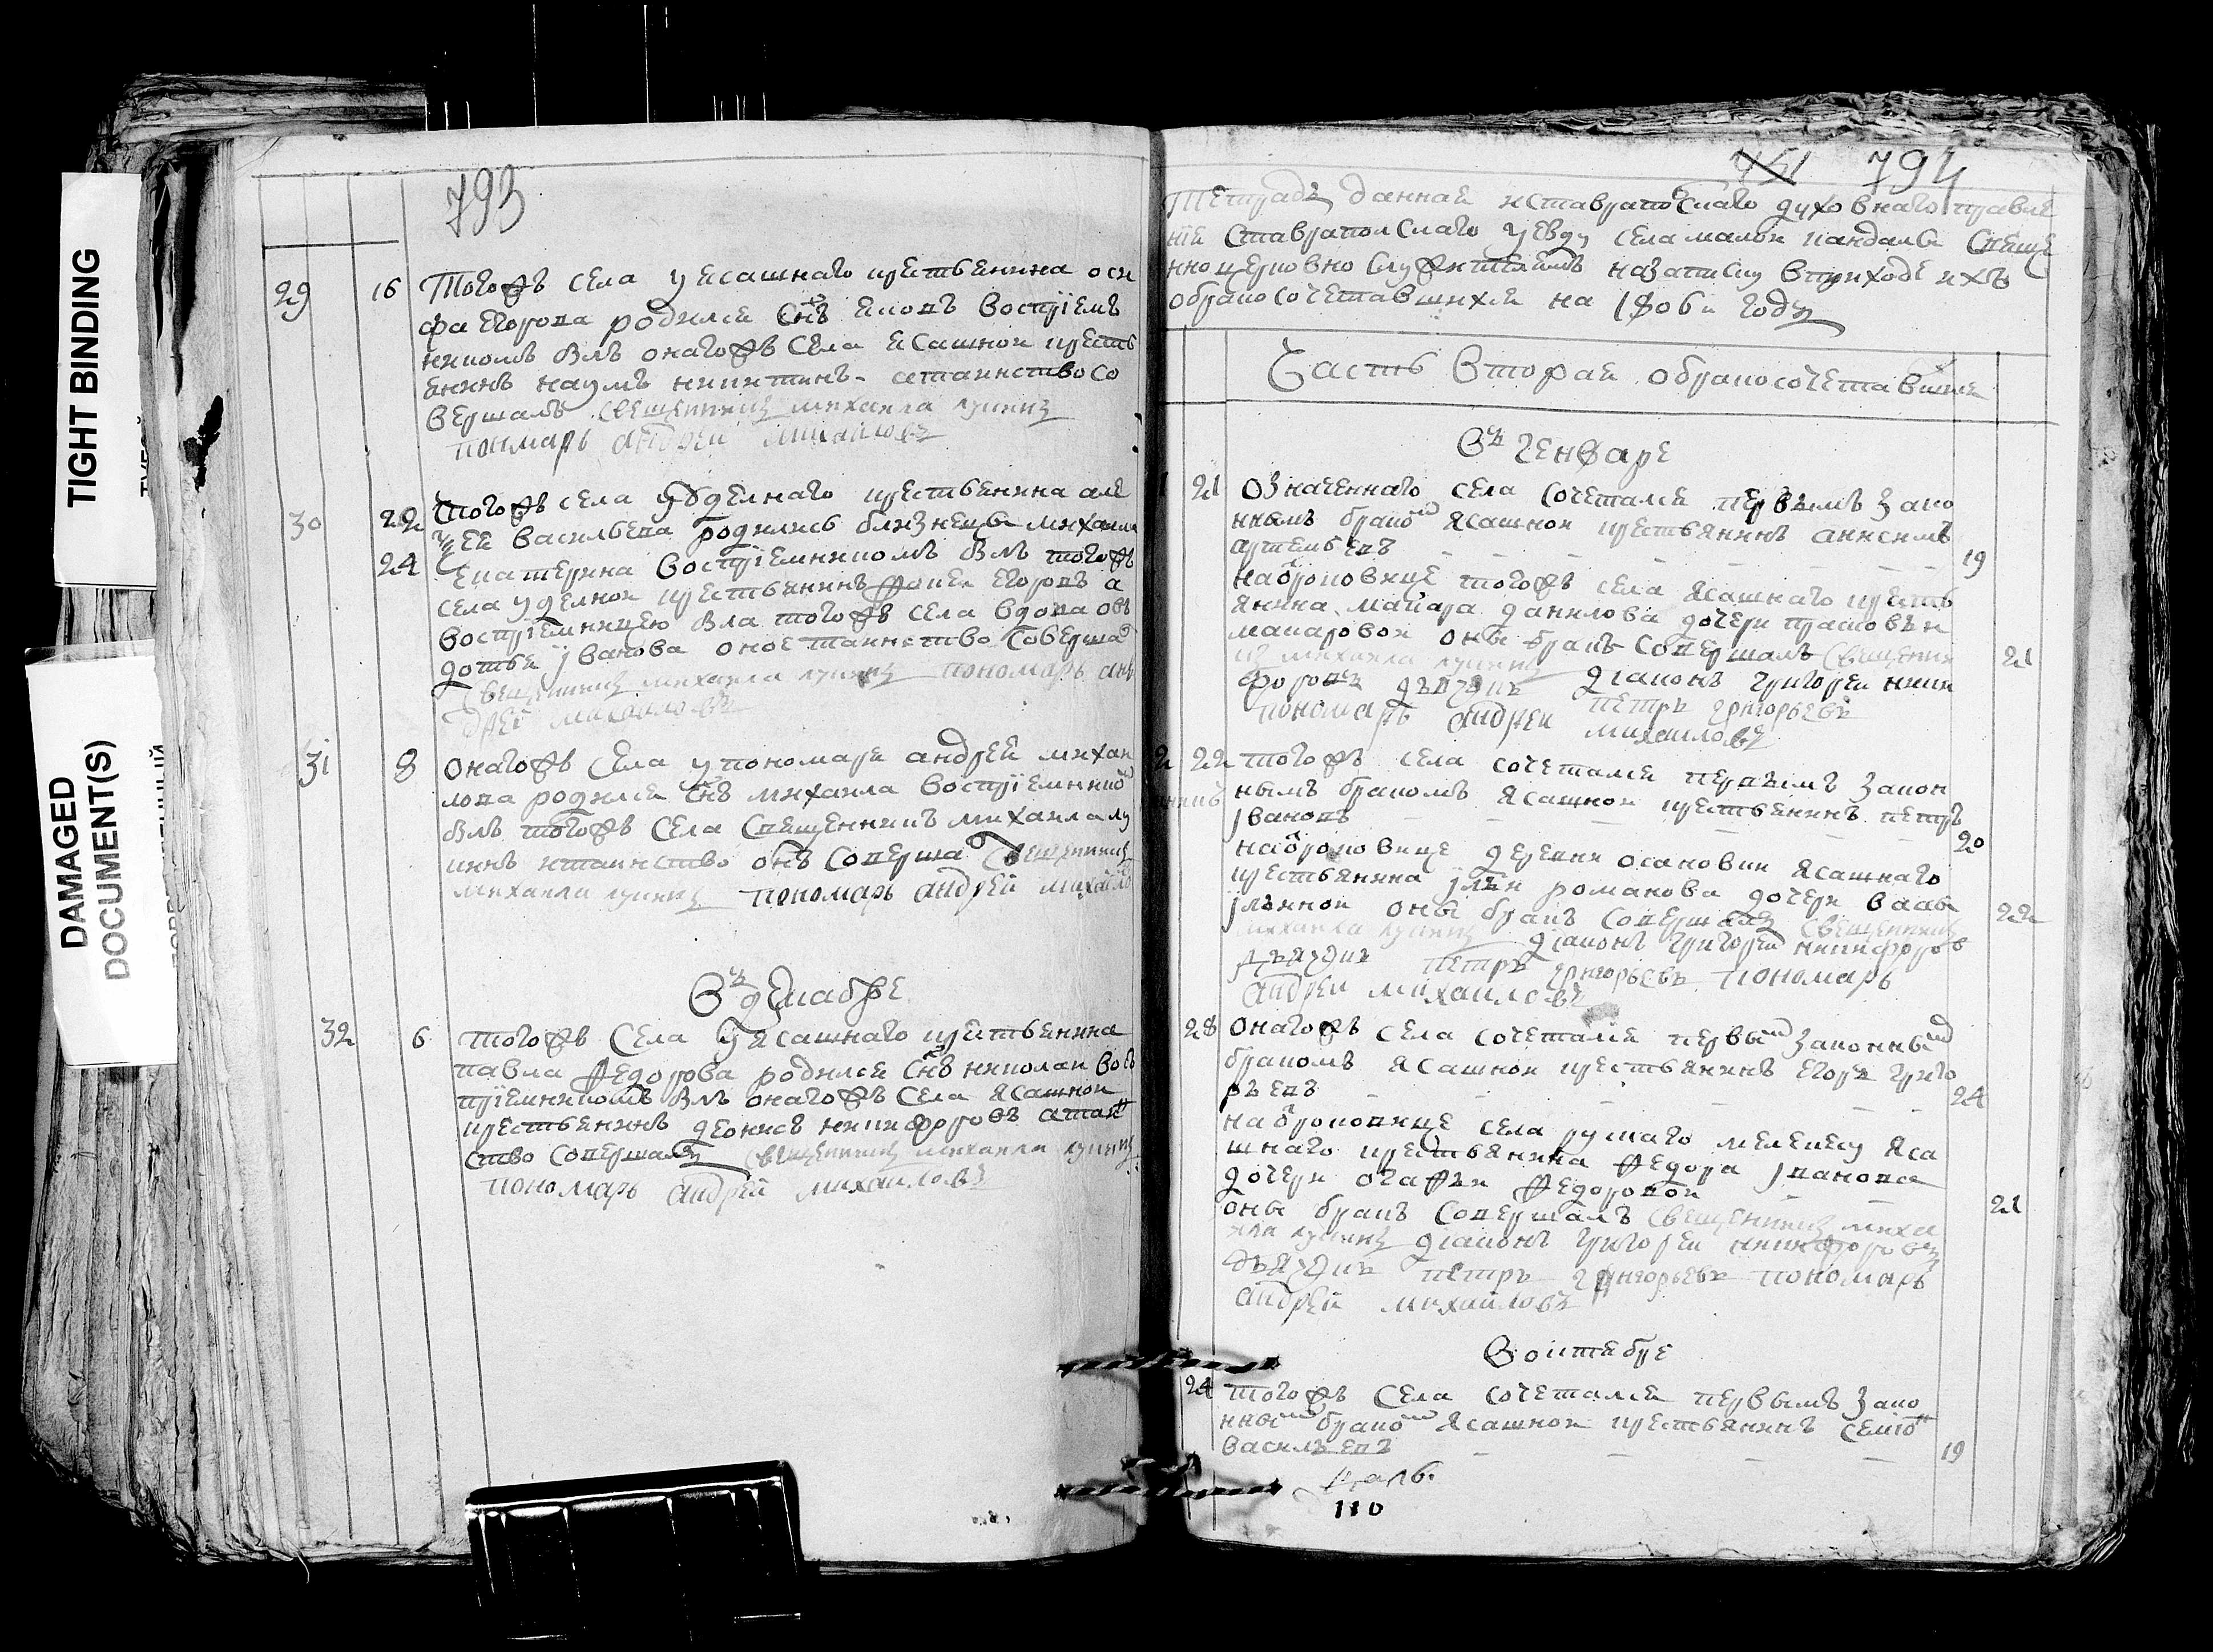 TIGHT BINDING
DAMAGED
DOCUMENT(S)
793
29 16 Тогожъ села у ясашнаго крестьянина оси
фа Егорова родился снъ Яковъ восприем
никомъ былъ онагожъ села ясашной кресть
янинъ наумъ никитинъ. а таинство со
вершалъ священникъ михаила лукинъ
пономарь андрей михаиловъ
30 22 Тогожъ села у уделнаго крестьянина але
ѯея васильева родились близнецы михаила
24 Екатерина восприемникомъ былъ тогожъ
села уделной крестьянинъ фока Егоровъ а
восприемницею была тогожъ села вдова овъ
дотья Iванова оное таинство совершал
священникъ михаила лукинъ пономарь ан
дрей михаиловъ
31 8 онагожъ села у пономаря андрея михаи
лова родился снъ михаила восприемником
былъ тогожъ села священникъ михаила лу
кинъ и таинство онъ совершал священникъ
михаила лукинъ пономарь андрей михайло
Въ декабре
32 6 тогожъ села у ясашнаго крестьянина
павла федорова родился снъ николаи вос
приемникомъ былъ онагожъ села ясашной
крестьянинъ денисъ никифоровъ а таин
ство совершалъ священникъ михаила лукинъ
пономарь андрей михаиловъ
451 794
Тетрадь данная и ставрапольскаго духовнаго правле
нiя ставрапольскаго уезду села малой кандалы свяще
нно церковно служителямъ на записку в приходе ихъ
о бракосочетавшихся на 1806й годъ
Часть вторая о бракосочетавшихся
Въ генваре
1 21 означеннаго села сочетался первымъ зако
ннымъ браком ясашной крестьянинъ анисимъ
артемьевъ 19
на отроковице тогожъ села ясашнаго кресть
янина макара данилова дочери прасковьи
макаровой оный бракъ совершалъ священни
къ михаила лукинъ дiаконъ григорей ники 21
форовъ дьячокъ петръ григорьевъ
пономарь андрей михаиловъ
2 22 тогожъ села сочетался первымъ закон
нымъ бракомъ ясашной крестьянинъ петръ
Iвановъ 20
на отроковице деревни осановки ясашнаго
крестьянина Iльи романова дочери
Iльиной оный бракъ совершалъ священникъ 22
михаила лукинъ дiаконъ григорей никифоров
дьячокъ петръ григорьевъ пономарь
андрей михаиловъ
28 онагожъ села сочетался первым законным
бракомъ ясашной крестьянинъ Егоръ григо
рьевъ 24
на отроковице села рускаго мелекесу яса
шнаго крестьянина федора Iванова
дочери агафьи федоровой
оный бракъ совершалъ священникъ миха 21
ила лукинъ дiаконъ григорей никифоровъ
дьячокъ петръ григорьевъ пономарь
андрей михайловъ
В октябре
24 тогожъ села сочетался первымъ зако
нным браком ясашной крестьянинъ семiон
васильевъ 19
110